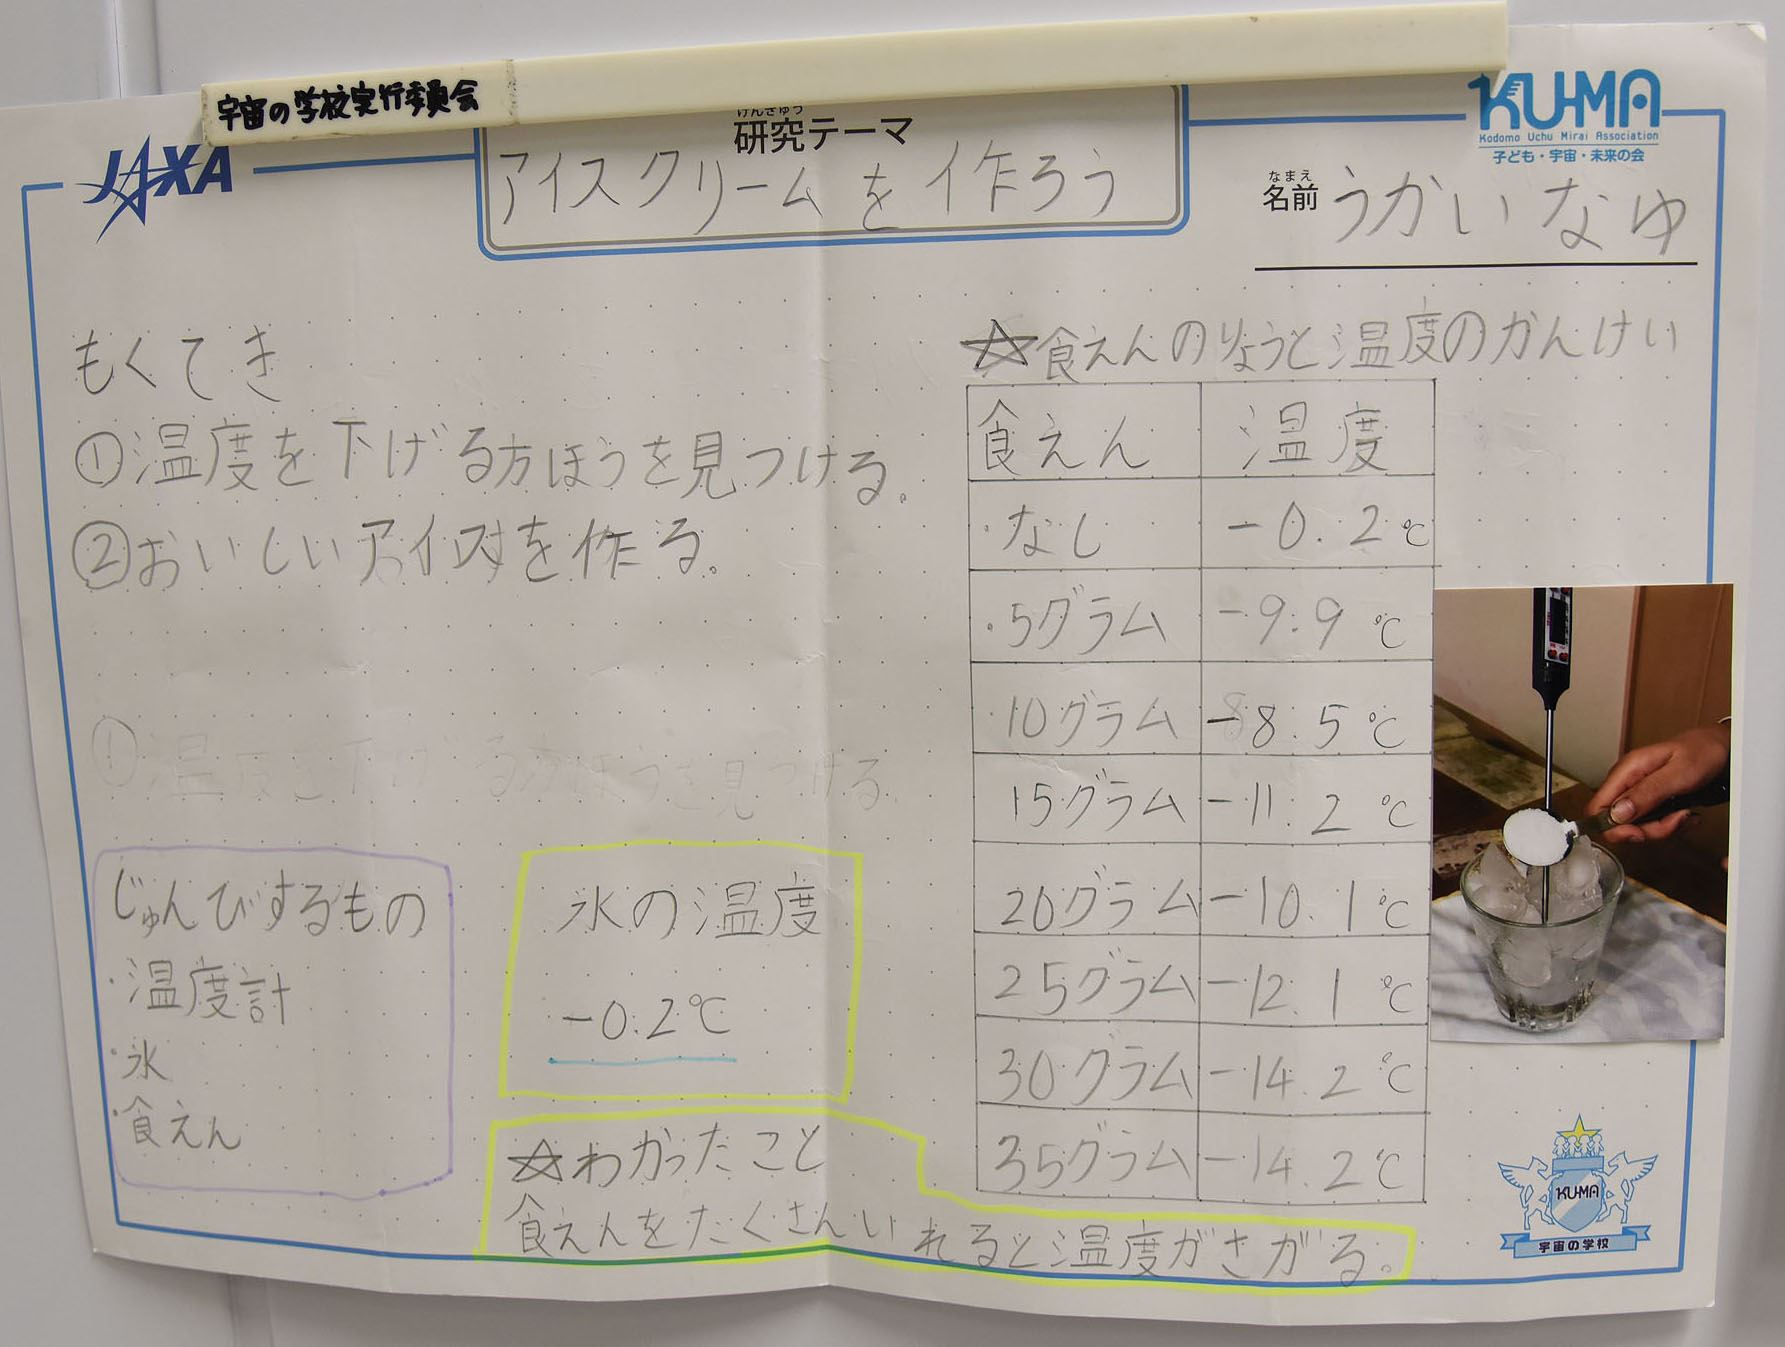 宇宙の学校実行委員会
JAXA
けんきゅう
研究テーマ
アイスクリームを作ろう
KU-MA
Kodomo Uchu Mirai Association
子ども・宇宙・未来の会
なまえ
名前 うかいなゆ
もくてき
①温度を下げる方ほうを見つける。
②おいしいアイスを作る。
①温度を下げる方ほうを見つける
じゅんびするもの
・温度計
・氷
・食えん
氷の温度
-0.2℃
☆わかったこと
食えんをたくさんいれると温度がさがる。
☆食えんのりょうと温度のかんけい
食えん 温度
・なし -0.2℃
・5グラム -9.9℃
・10グラム -8.5℃
15グラム -11.2℃
20グラム -10.1℃
25グラム -12.1℃
30グラム -14.2℃
35グラム -14.2℃
KU-MA
宇宙の学校